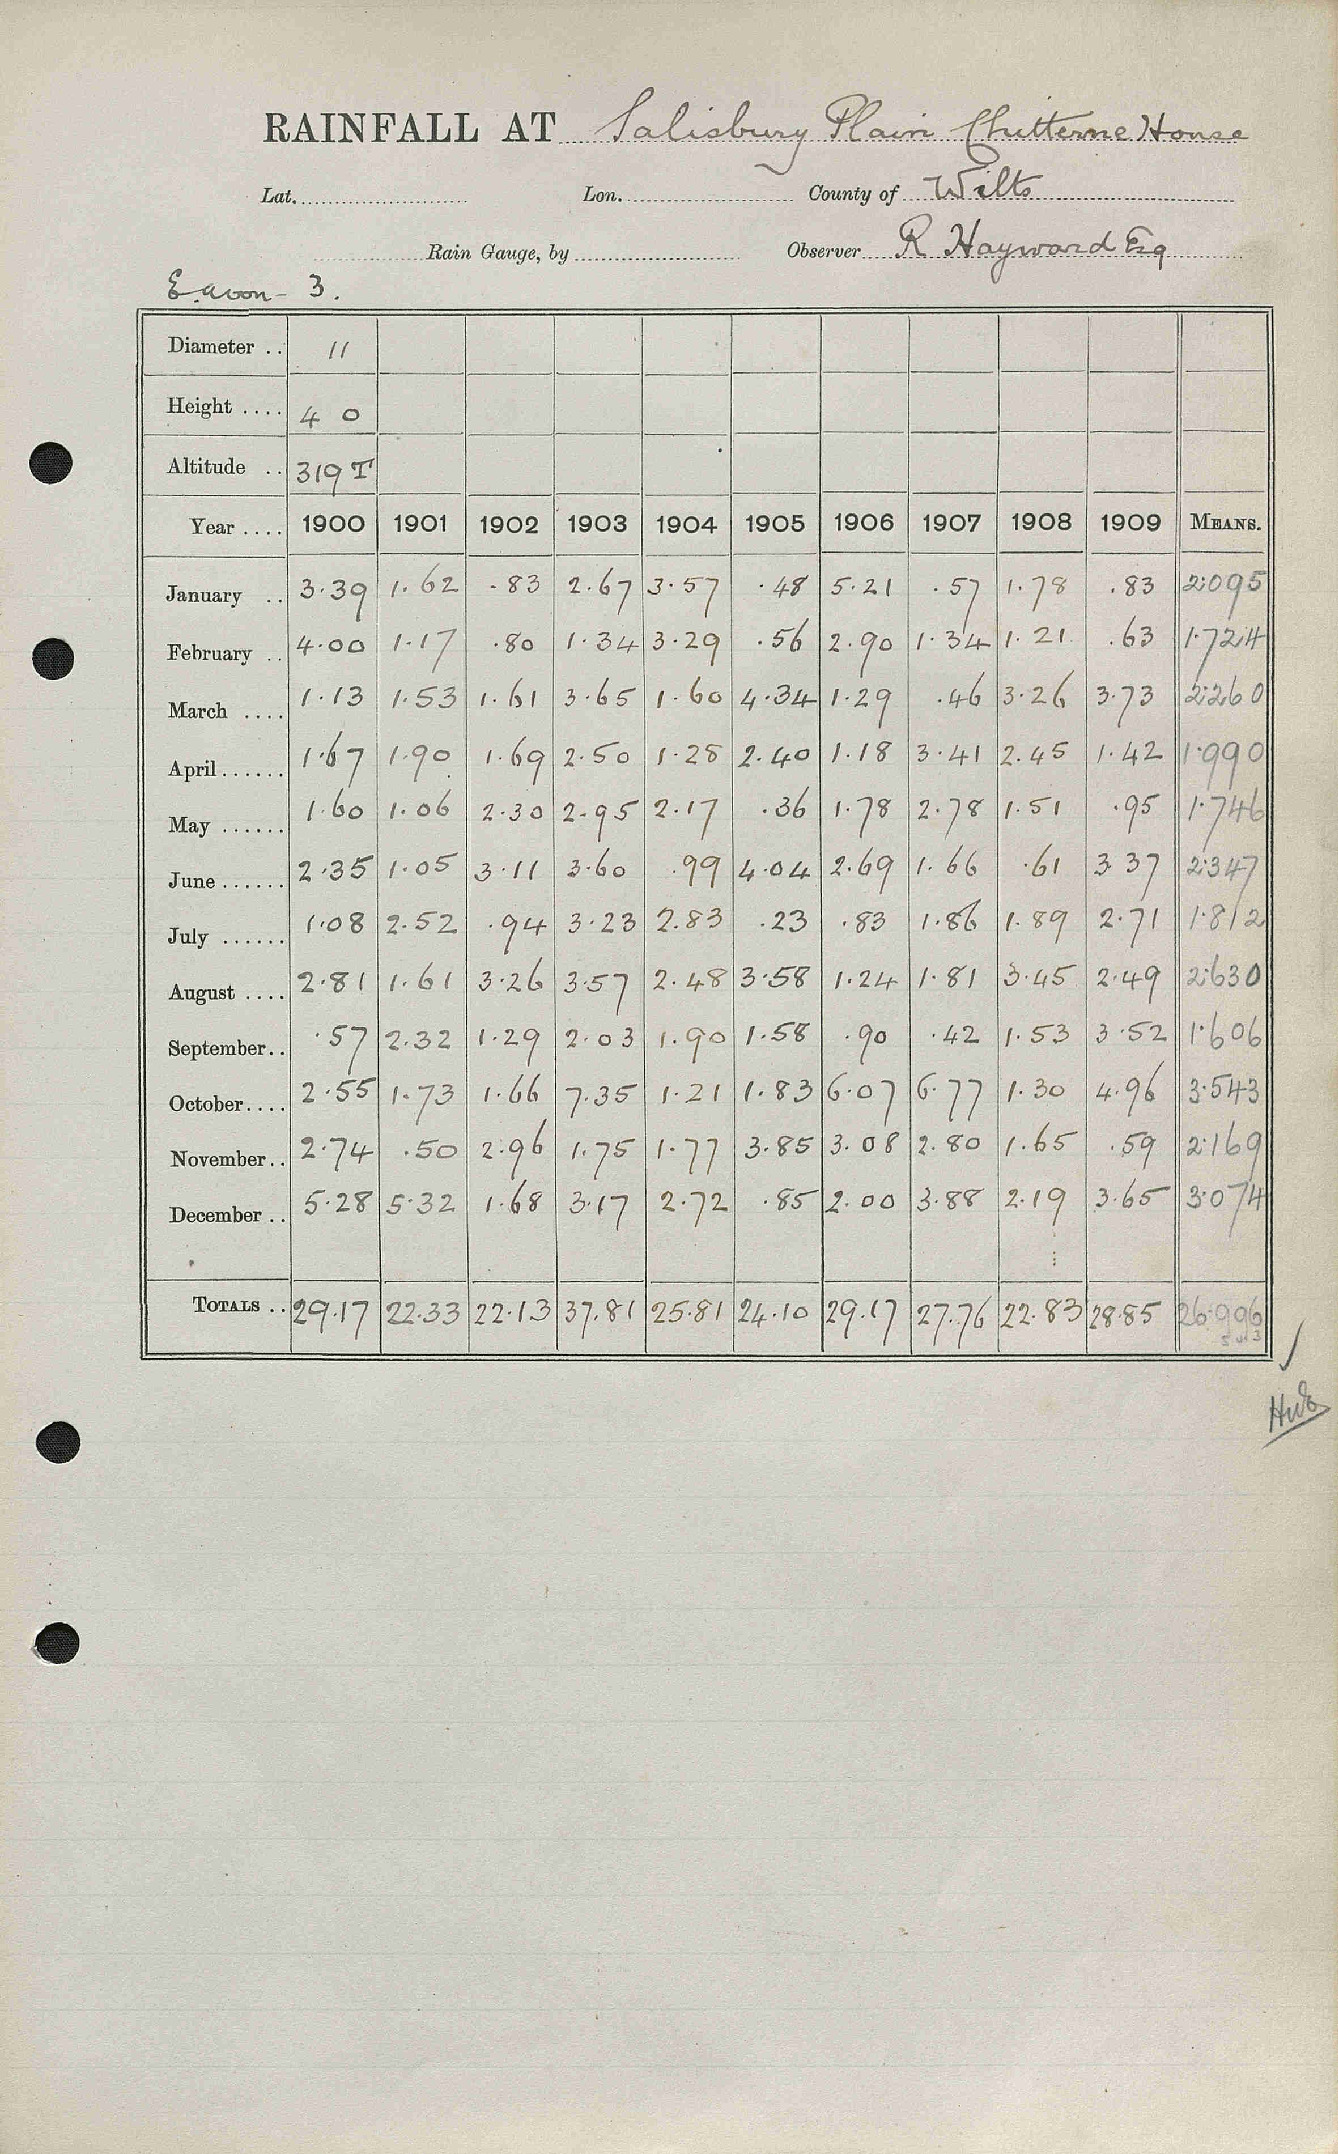 RAINFALL AT Salisbury Plain Chitterne House
Lat. Lon. County of Wilts
Rain Gauge, by Observer R Hayward Esq
E. Avon - 3.
Diameter .. 11
Height .... 4 0
Altitude .. 319 T
Year .... 1900 1901 1902 1903 1904 1905 1906 1907 1908 1909 MEANS.
January .. 3.39 1.62 .83 2.67 3.57 .48 5.21 .57 1.78 .83 2.095
February .. 4.00 1.17 .80 1.34 3.29 .56 2.90 1.34 1.21 .63 1.724
March .... 1.13 1.53 1.61 3.65 1.60 4.34 1.29 .46 3.26 3.73 2.260
April ...... 1.67 1.90 1.69 2.50 1.28 2.40 1.18 3.41 2.45 1.42 1.990
May ...... 1.60 1.06 2.30 2.95 2.17 .36 1.78 2.78 1.51 .95 1.746
June ...... 2.35 1.05 3.11 3.60 .99 4.04 2.69 1.66 .61 3 37 2.347
July ...... 1.08 2.52 .94 3.23 2.83 .23 .83 1.86 1.89 2.71 1.812
August .... 2.81 1.61 3.26 3.57 2.48 3.58 1.24 1.81 3.45 2.49 2.630
September.. .57 2.32 1.29 2.03 1.90 1.58 .90 .42 1.53 3.52 1.606
October.... 2.55 1.73 1.66 7.35 1.21 1.83 6.07 6.77 1.30 4.96 3.543
November.. 2.74 .50 2.96 1.75 1.77 3.85 3.08 2.80 1.65 .59 2.169
December .. 5.28 5.32 1.68 3.17 2.72 .85 2.00 3.88 2.19 3.65 3.074
TOTALS .. 29.17 22.33 22.13 37.81 25.81 24.10 29.17 27.76 22.83 28.85 26.996